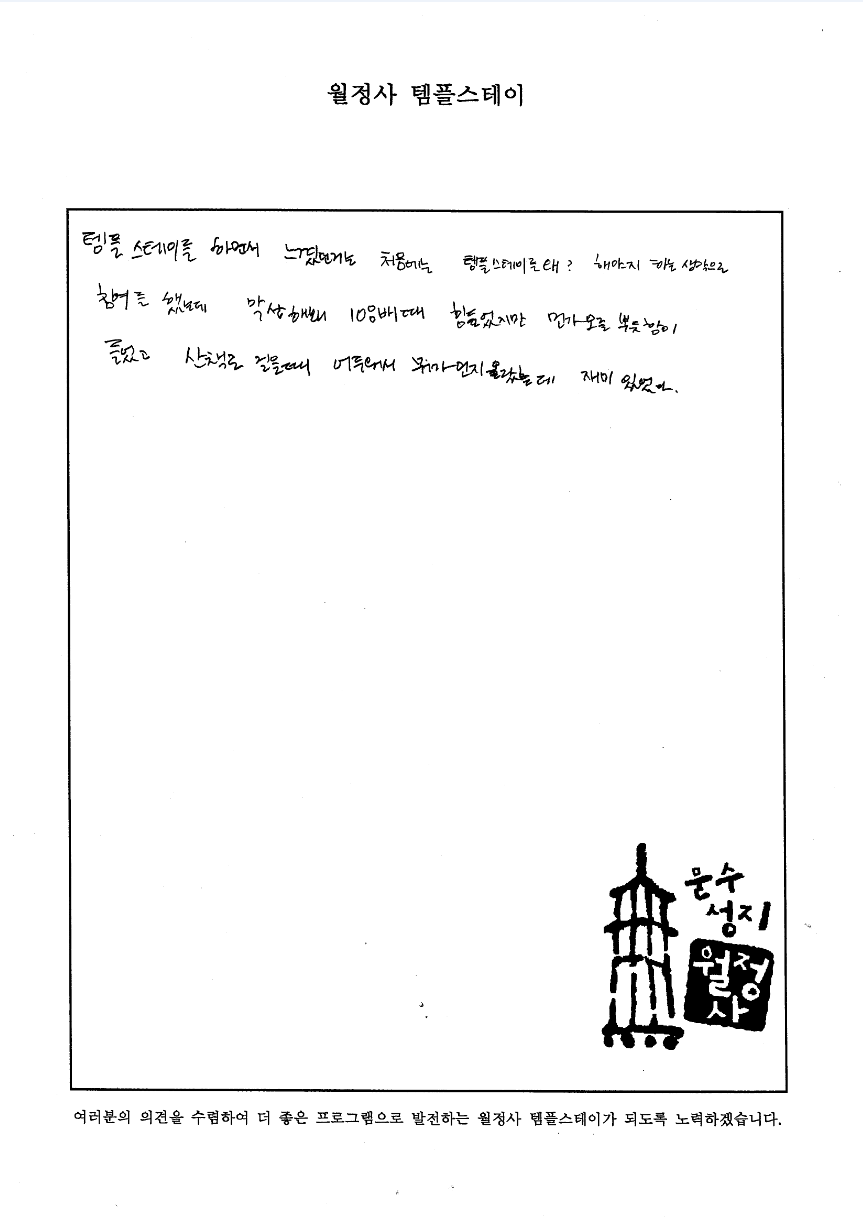 월정사 템플스테이
템플 스테이를 하면서 느꼈던거는 처음에는 템플스테이를 왜? 해야지 하는 생각으로
참여를 했는데 막상 해보니 108배 때 힘들었지만 먼가 모를 뿌듯함이
들었고 산책로 걸을때 어두워서 뭐가 먼지 몰랐는데 재미 있었다.
문수
성지
월정
사
여러분의 의견을 수렴하여 더 좋은 프로그램으로 발전하는 월정사 템플스테이가 되도록 노력하겠습니다.